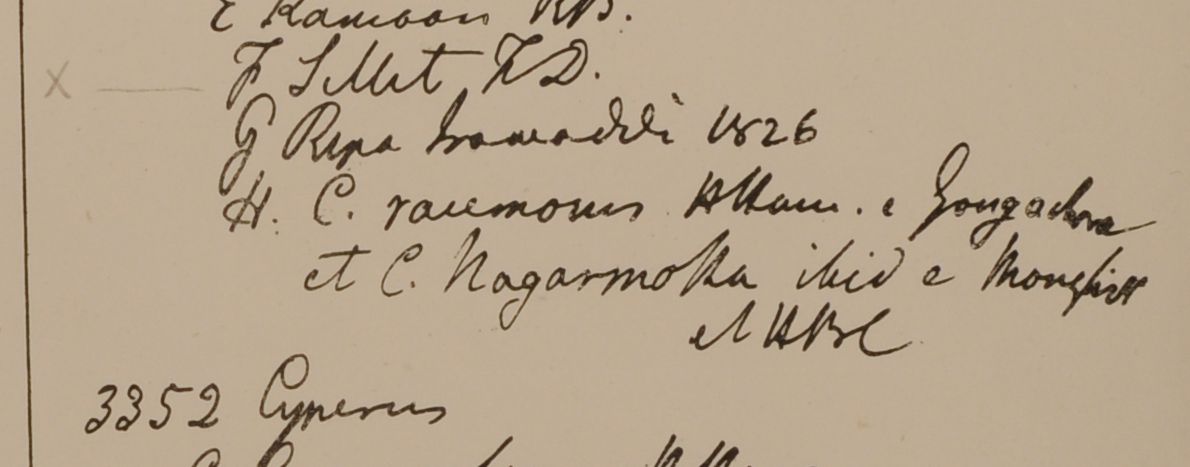 E Kamoon RB.
X F Sillet F.D.
G Ripa Irawaddi 1826
H. C. racemosus HHam. e Gongachora
et C. Nagarmotha ibid e Monghir
et HBC
3352 Cyperus